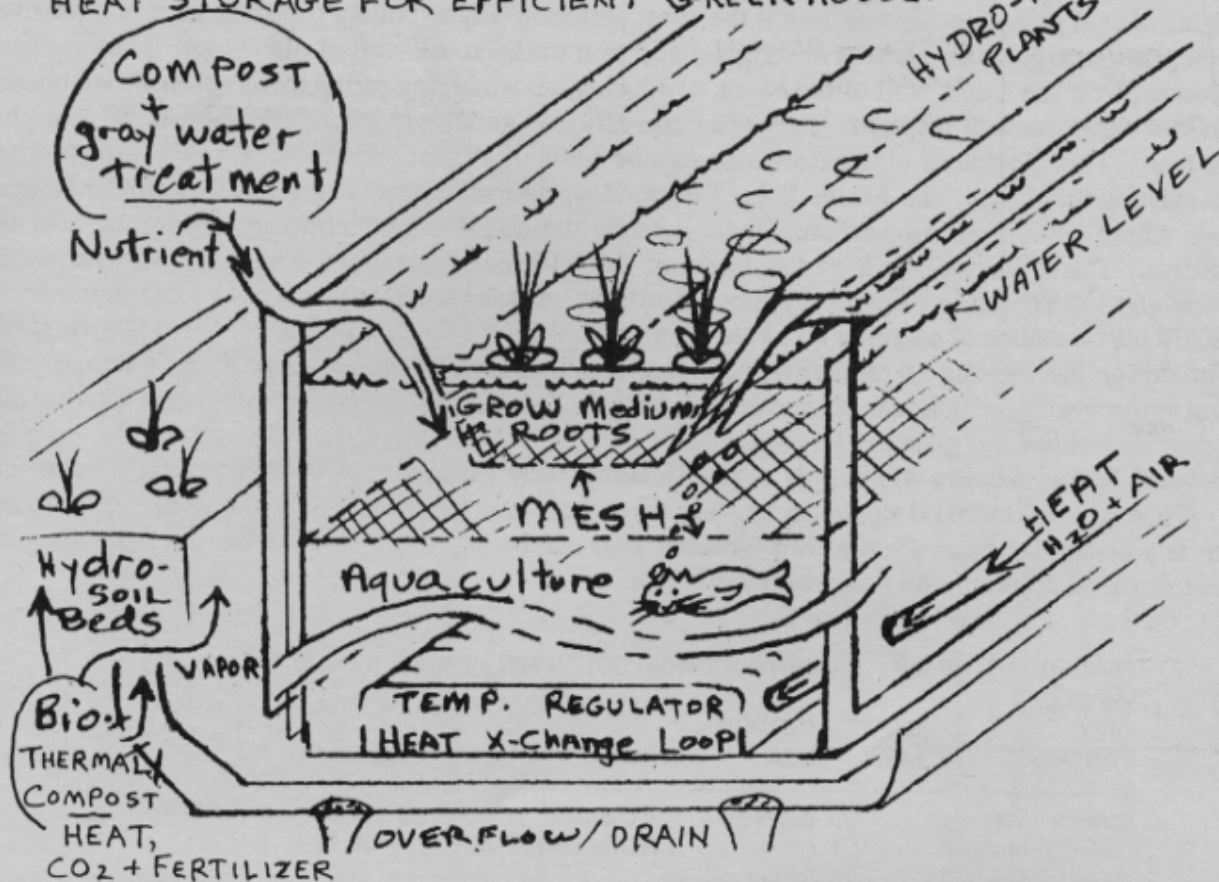 HEAT STORAGE FOR EFFICIENT GREENHOUSE
Compost
+
gray water
treatment
Nutrient
HYDRO-
PLANTS
WATER LEVEL
GROW Medium
ROOTS
MESH
HEAT
H2O + AIR
Hydro-
SOIL
Beds
Aquaculture
VAPOR
TEMP. REGULATOR
HEAT X-Change LOOP
Bio-
THERMAL
COMPOST
HEAT,
CO2 + FERTILIZER
OVERFLOW/DRAIN